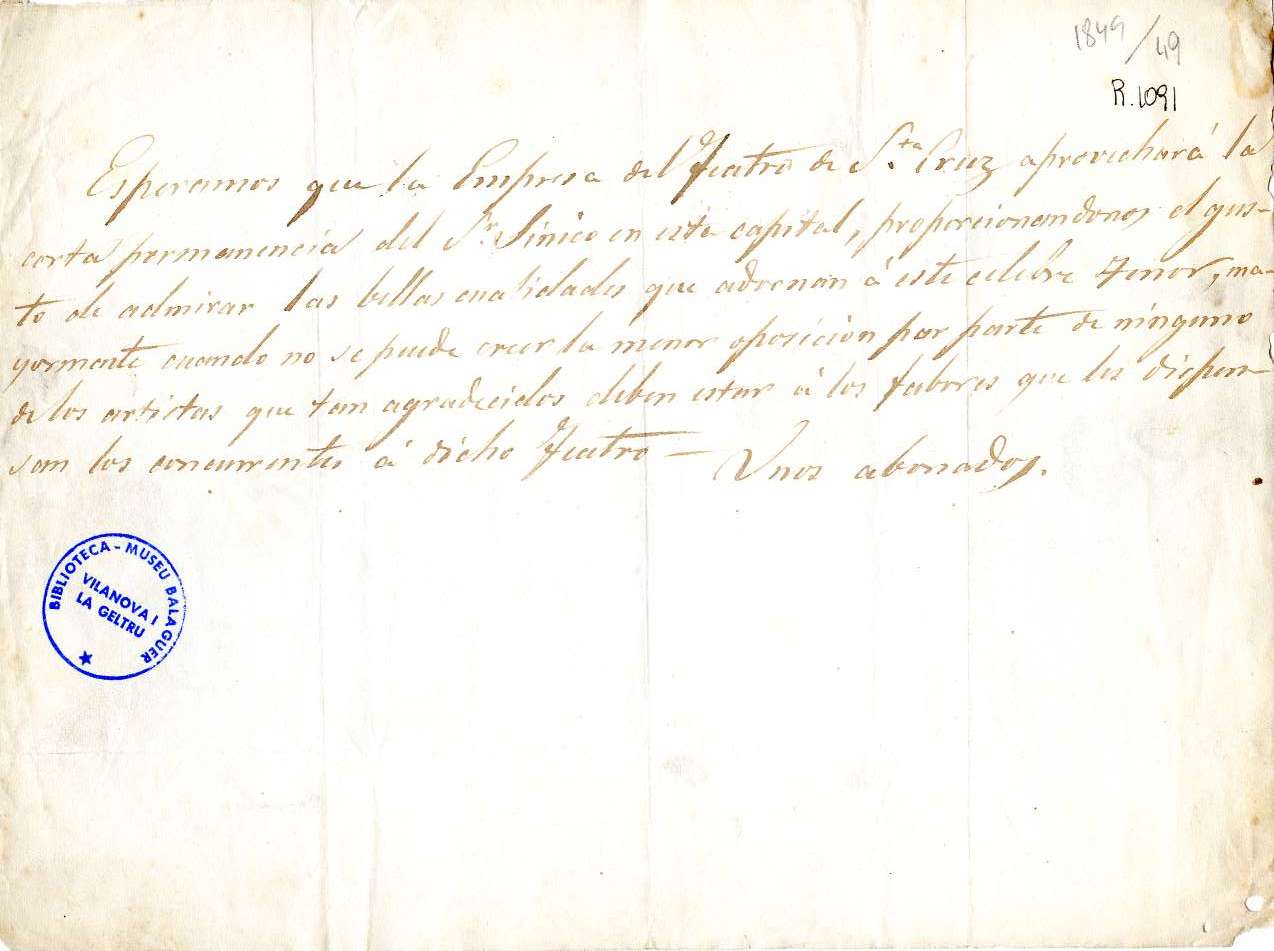 1849/49
R.1091
Esperamos que la Empresa del Teatro de S.ta Cruz aprovechará la
corta permanencia del S.r Sinico en esta capital, proporcionandonos el gus-
to de admirar las bellas cualidades que adornan á este celebre Tenor, ma-
yormente cuando no se puede creer la menor oposicion por parte de ninguno
de los artistas que tan agradecidos deben estar á los fabores que les dispen-
san los concurrentes á dicho Teatro — Unos abonados.
BIBLIOTECA - MUSEU BALAGUER
VILANOVA I
LA GELTRU